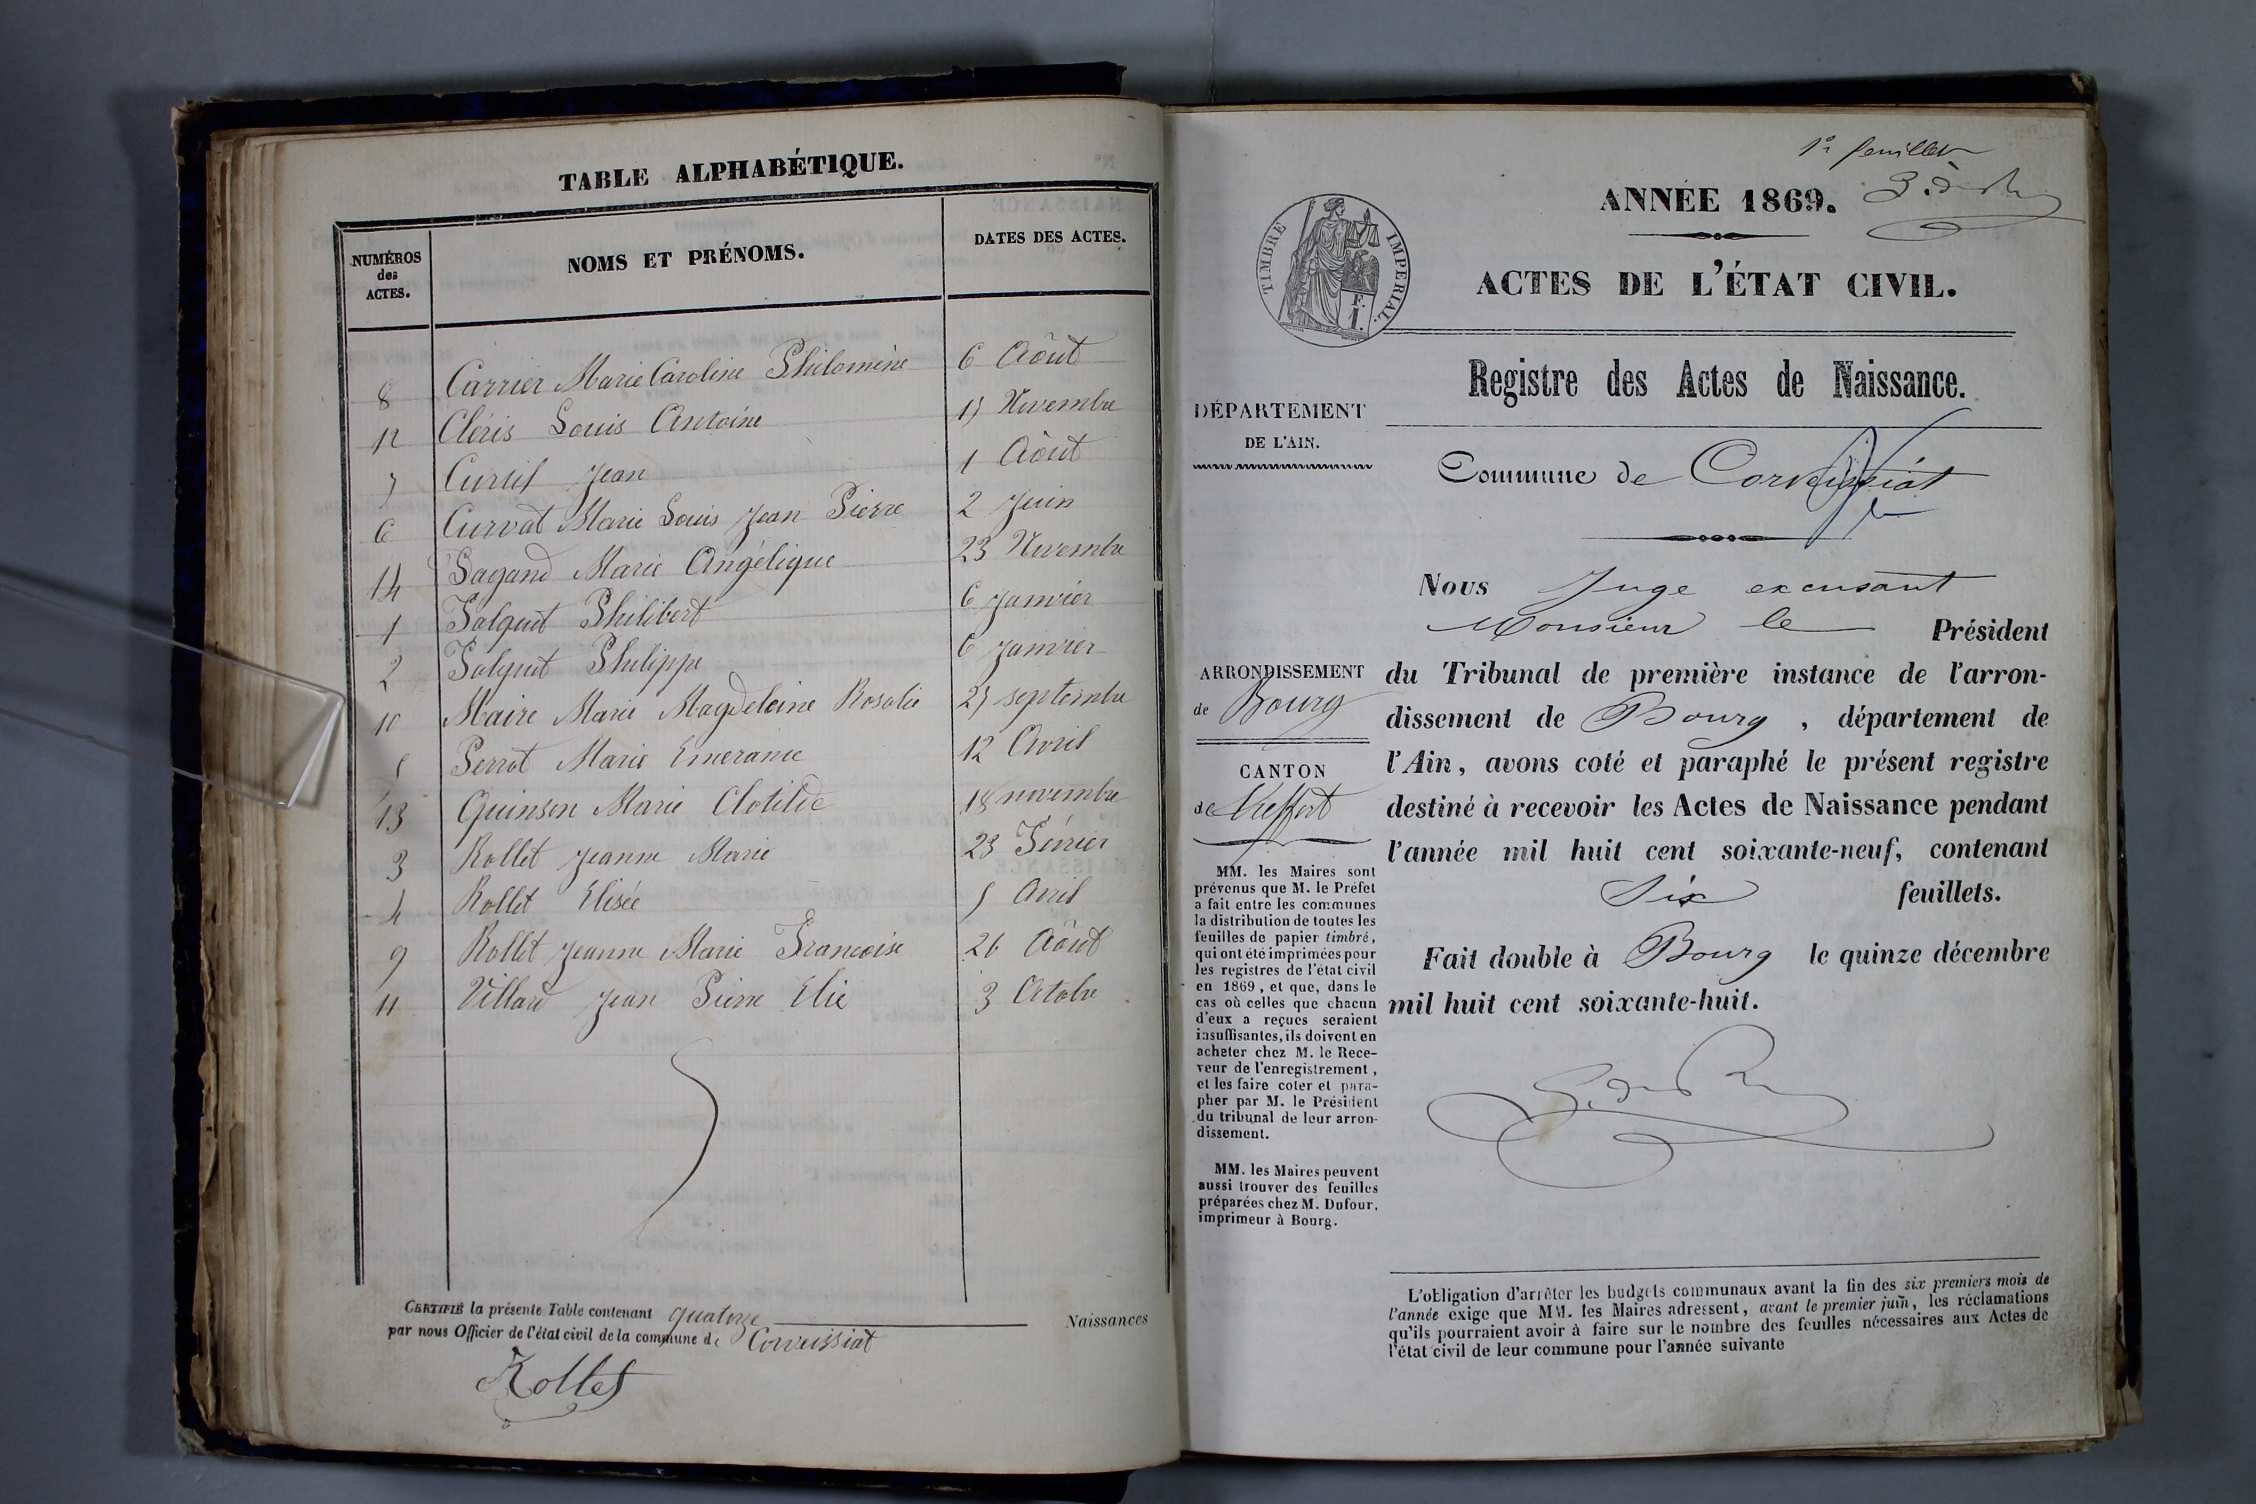 TABLE ALPHABÉTIQUE.
NUMÉROS
des
ACTES.
NOMS ET PRÉNOMS.
DATES DES ACTES.
8 Carrier Marie Caroline Philomène 6 Aôut
12 Cléris Louis Antoine 15 Novembre
7 Curtil Jean 1 Aôut
6 Curvat Marie Louis Jean Pierre 2 Juin
14 Pagand Marie Angélique 23 Novembre
1 Philibert 6 Janvier
2 Philippe 6 Janvier
10 Maire Marie Magdeleine Rosalie 25 septembre
5 Perrot Marie Emeranie 12 Avril
13 Quinson Marie Clotilde 18 novembre
3 Rollet Jeanne Marie 23 Février
4 Rollet Elisée 5 Avril
9 Rollet Jeanne Marie Francoise 26 Aôut
11 Villard Jean Pierre Elie 3 Octobre
CERTIFIÉ la présente Table contenant quatorze Naissances
par nous Officier de l'état civil de la commune de Corveissiat
Rollet
1er feuillet
ANNÉE 1869.
TIMBRE IMPERIAL.
F.
I.
ACTES DE L'ÉTAT CIVIL.
Registre des Actes de Naissance.
DÉPARTEMENT
DE L'AIN.
Commune de Corveissiat
Nous Juge excusant
Monsieur le Président
du Tribunal de première instance de l'arron-
dissement de Bourg, département de
l'Ain, avons coté et paraphé le présent registre
destiné à recevoir les Actes de Naissance pendant
l'année mil huit cent soixante-neuf, contenant
six feuillets.
Fait double à Bourg le quinze décembre
mil huit cent soixante-huit.
ARRONDISSEMENT
de Bourg
CANTON
de Treffort
MM. les Maires sont
prévenus que M. le Préfet
a fait entre les communes
la distribution de toutes les
feuilles de papier timbré,
qui ont été imprimées pour
les registres de l'état civil
en 1869, et que, dans le
cas où celles que chacun
d'eux a reçues seraient
insuffisantes, ils doivent en
acheter chez M. le Rece-
veur de l'enregistrement,
et les faire coter et para-
pher par M. le Président
du tribunal de leur arron-
dissement.
MM. les Maires peuvent
aussi trouver des feuilles
préparées chez M. Dufour,
imprimeur à Bourg.
L'obligation d'arrêter les budgets communaux avant la fin des six premiers mois de
l'année exige que MM. les Maires adressent, avant le premier juin, les réclamations
qu'ils pourraient avoir à faire sur le nombre des feuilles nécessaires aux Actes de
l'état civil de leur commune pour l'année suivante